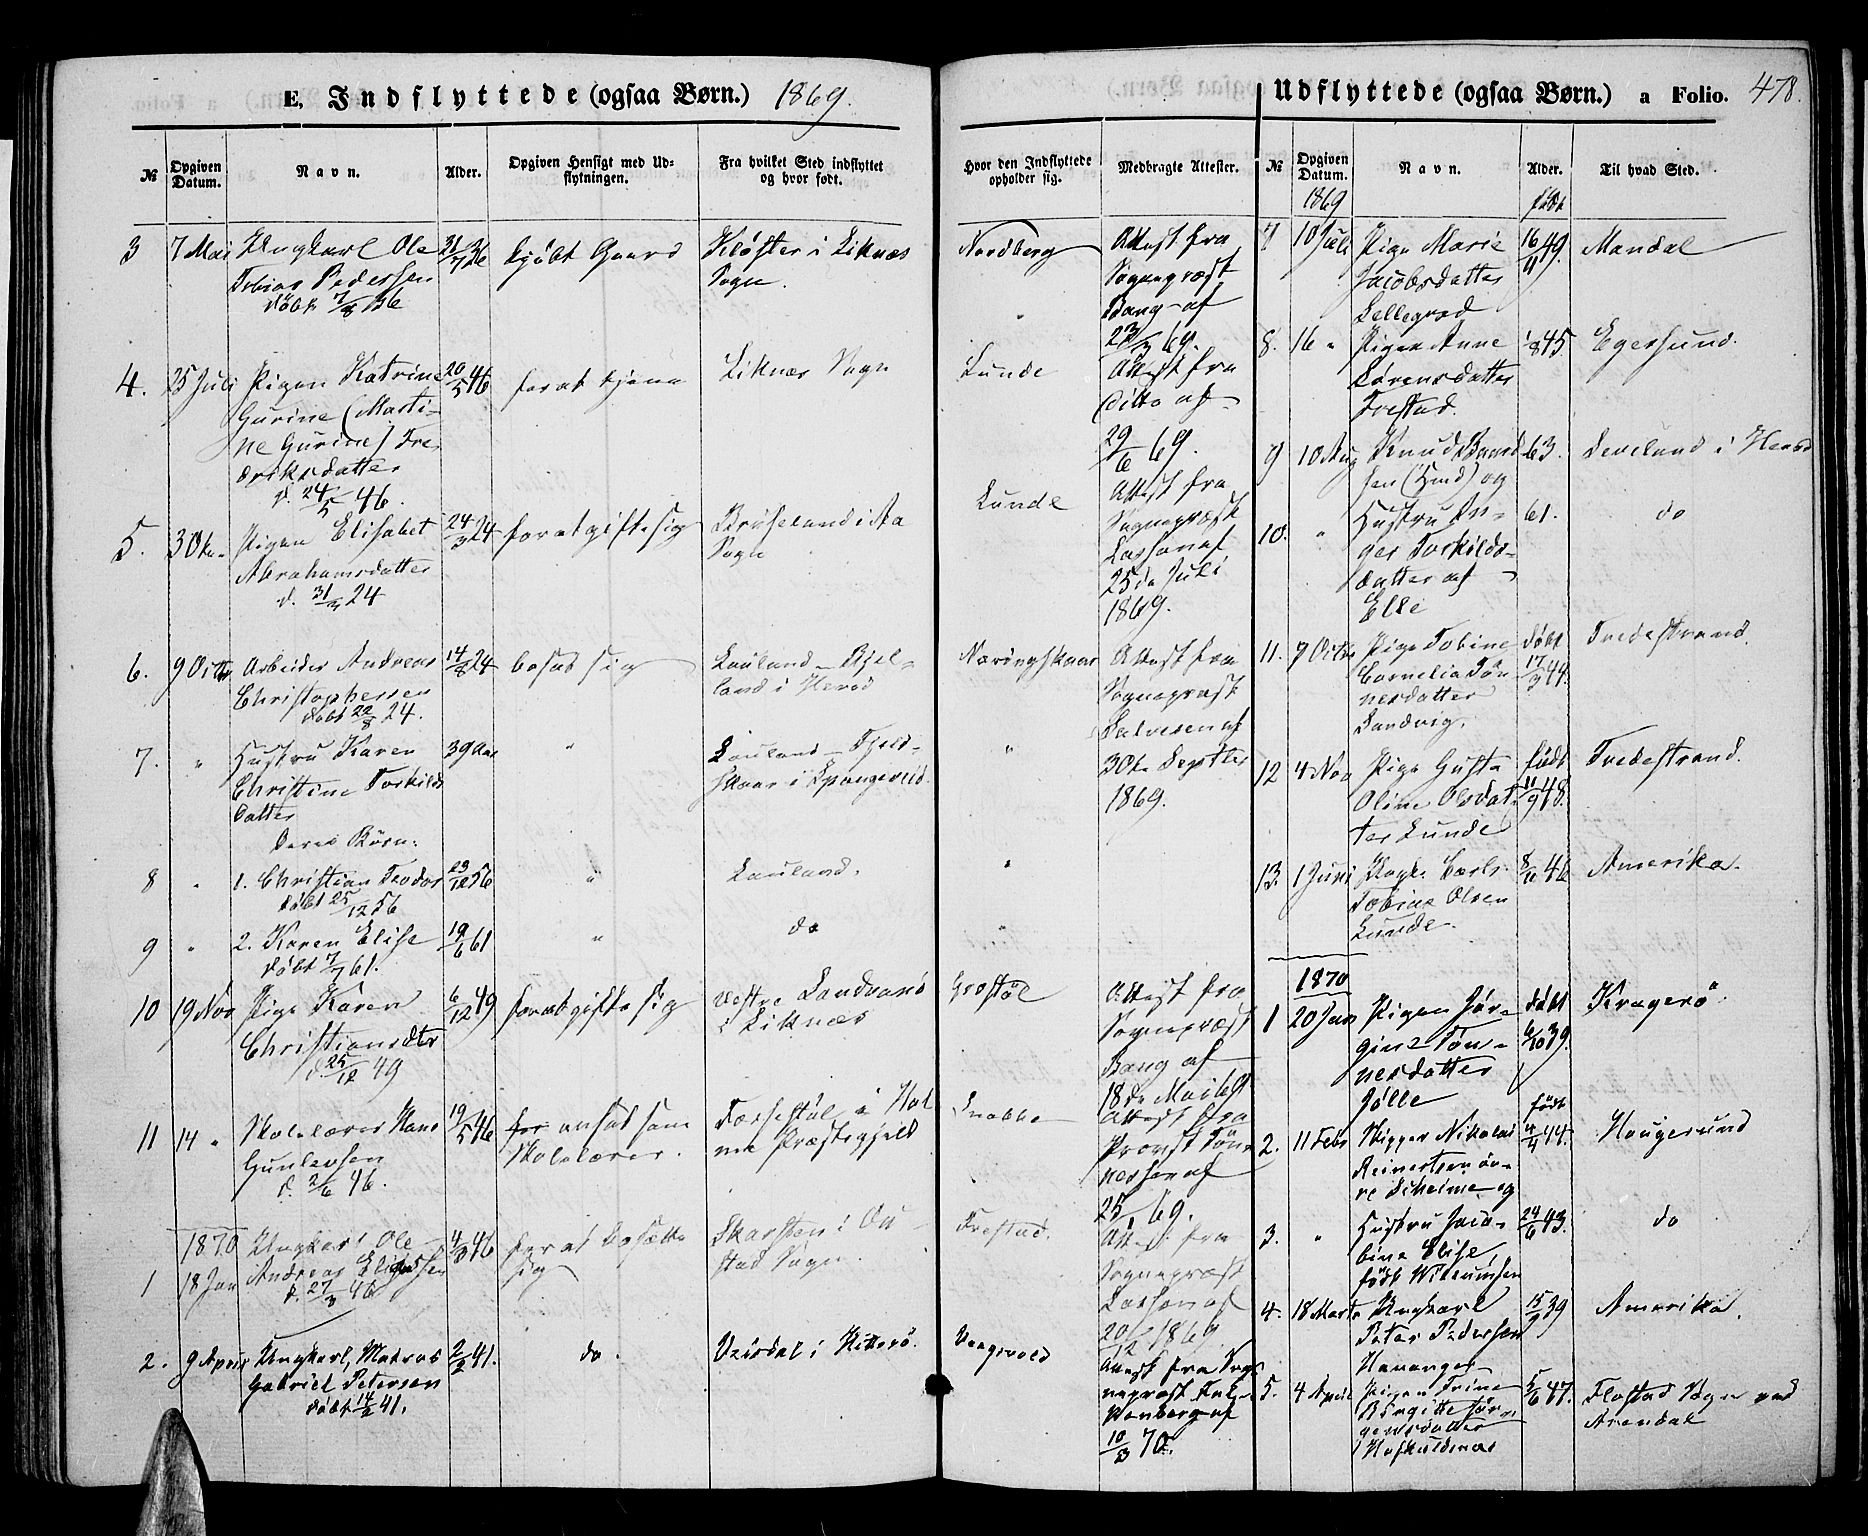 E, Indflyttede (ogsaa Børn.) 1869.
№
Opgiven Datum.
Navn.
Alder.
Opgiven Hensigt med Udflytningen.
Fra hvilket Sted indflyttet og hvor født.
3 7 Mai Ungkarl Ole 31/7 36 kjøbt Gaard Kløster i Liknæs
Tobias Pedersen Sogn.
døbt 7/8 36
4. 25 Juli Pigen Katrine 20/5 46 for at tjene Liknæs Sogn
Gurine (Marti-
ne Gurine) Fre
deriksdatter
d. 24/5 46.
5. 30 Pigen Elisabet 24/3 24 for at gifte sig i Aa
Abrahamsdatter Sogn
d. 31/3 24
6. 9 Octbr Arbeider Andreas 14/8 24 bosat sig Lauland
Christophersen land i Herod
døbt 22/8 24.
7. " Hustru Karen 39 Aar " Lauland - Fjeld-
Christine Torkilds skaar i Spangereid.
datter
Deres Børn:
8 " 1. Christian Teodor 23/12 56 " Lauland.
døbt 25/12 56
9 " 2. Karen Elise 19/6 61 " do
døbt 7/7 61.
10 19 Nov Pige Karen 6/12 49 for at gifte sig vestre Landvand
Christiansdtr i Liknæs
d. 25/12 49
11 14 " Skolelærer Hans 19/5 46 ansat som i Hol
Gunlevsen Skolelærer. me Præstegjeld
d. 2/6 46.
1870 Ungkarl Ole 4/3 46 for at bosætte Skarsten i Ou-
1 18 Jan Andreas sig stad Sogn
d. 27/3 46
2. 9 April Ungkarl, Matias 2/2 41. do. i Hitterø
Gabriel Petersen
døbt 14/2 41.
Hvor den Indflyttede opholder sig.
Medbragte Attester.
Nordberg Attest fra
Sognepræst
Bang af
23/ 69.
Lunde Attest fra
ditto af
29/6 69.
Lunde Attest fra
Sognepræst
Lassen af
25de Juli
1869.
Attest fra
Sognepræst
Salvesen af
" 30te Septbr
1869.
"
"
Grostøl Attest fra
Sognepræst
Bang af
18de Mai 69
Snekke Attest fra
Provst Tøn-
nessen af
25/ 69.
Frestad. Attest fra
Sognepræst
Lassen af
20/12 1869
Attest fra Sog-
nepræst
af
10/3 70.
Udflyttede (ogsaa Børn.) a Folio. 478.
№
Opgiven Datum.
Navn.
Alder.
Til hvad Sted.
1869 født
7 10 Juli Pige Marie 16/11 49. Mandal
Jacobsdatter
8. 16 " Pigen Anne 1/8 45 Egersund.
Sørensdatter
Frestad.
9 10 Aug Knud Baard 63. i Herod
sen og
10. " Hustru In- 61. do
ger Torkilds-
datter af
Elle
11. 7 Octbr Pige Tobine døbt Tvedestrand.
Cornelia Tøn- 17/3 44.
nesdatter
Sandvig.
12 4 Nov Pige Gusta født Tvedestrand.
Oline Olsdat- 11/9 48.
ter Lunde
13. 1 Juni Ungk. Carl 8/11 46 Amerika.
Tobias Olsen
Lunde.
1870
1 20 Jan Pigen Jør- født Kragerø
gine Tøn- 6/10 39.
nesdatter
Jølle født
2. 11 Febr Skipper Nikolai 4/4 44. Haugesund
Reinertsen øv-
re og
3. " Hustru Jaco- 24/6 43. do
bine Elise,
født
4. 18 Marts Ungkarl 15/9 39 Amerika.
Peter Pedersen
Havanger
5. 4 April Pigen Trine 5/6 47. Flostad Sogn ved
Birgitte Jør- Arendal
gensdatter